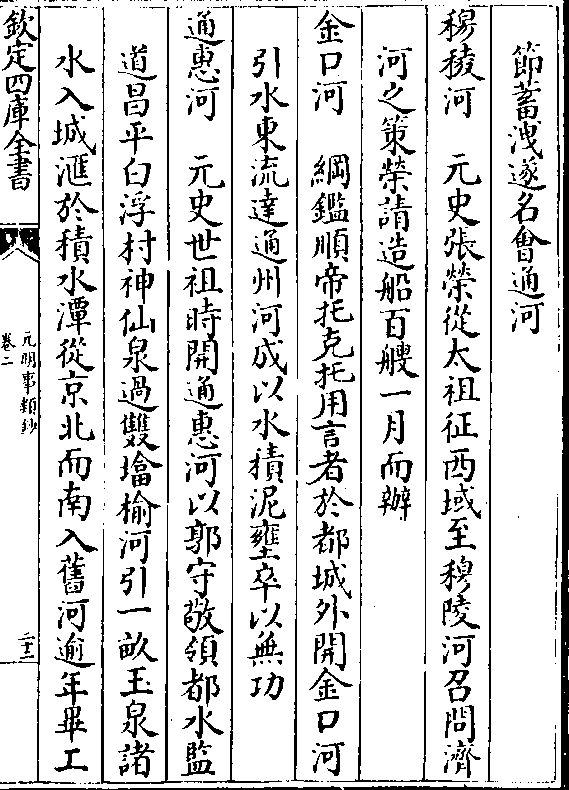 節蓄洩遂名會通河
穆稜河　元史張榮從太祖征西域至穆陵河召問濟
河之策榮請造船百艘一月而辦
金口河　綱鑑順帝托克托用言者於都城外開金口河
引水東流達通州河成以水積泥壅卒以無功
通惠河　元史世祖時開通惠河以郭守敬領都水監
道昌平白浮村神仙泉過雙㙮榆河引一畝玉泉諸
水入城滙於積水潭從京北而南入舊河逾年畢工
欽定四庫全書
元明事類鈔
卷二
二十二